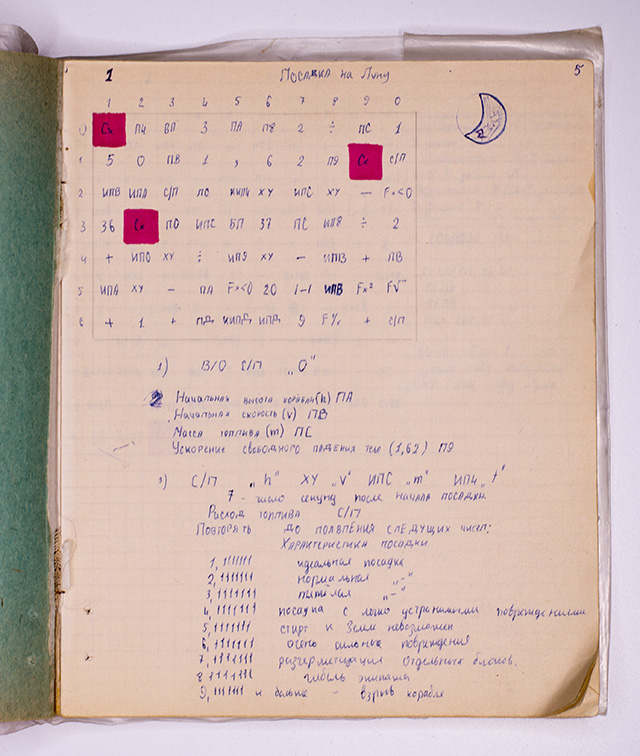 1 Посадка на Луну 5
1 2 3 4 5 6 7 8 9 0
0 Сх П4 ВП 3 ПА П8 2 ÷ ПС 1
1 5 0 ПВ 1 , 6 2 П9 Сх С/П
2 ИПВ ИПА С/П ПС КИП4 ХУ ИПС ХУ — Fx<0
3 36 Сх ПО ИПС БП 37 ПС ИП8 ÷ 2
4 + ИПО ХУ ÷ ИП9 ХУ — ИПВ + ПВ
5 ИПА ХУ — ПА Fx<0 20 /-/ ИПВ Fx² F√
6 + 1 + ПД КИПД ИПД 9 F¹/x + С/П
1) В/О С/П „0"
2 Начальная высота корабля (h) ПА
Начальная скорость (v) ПВ
Масса топлива (m) ПС
Ускорение свободного падения тела (1,62) П9
3) С/П „h" ХУ „V" ИПС „m" ИП4 „t"
7 - число секунд после начала посадки
Расход топлива С/П
Повторять до появления следущих чисел:
Характеристика посадки
1,1111111 идеальная посадка
2,1111111 нормальная -"-
3,1111111 тяжёлая -"-
4,1111111 посадка с легко устранимыми повреждениями
5,1111111 старт к Земле невозможен
6,1111111 очень сильные повреждения
7,1111111 разгерметизация отдельных блоков.
8 1111111 гибель экипажа
9,1111111 и больше - взрыв корабля